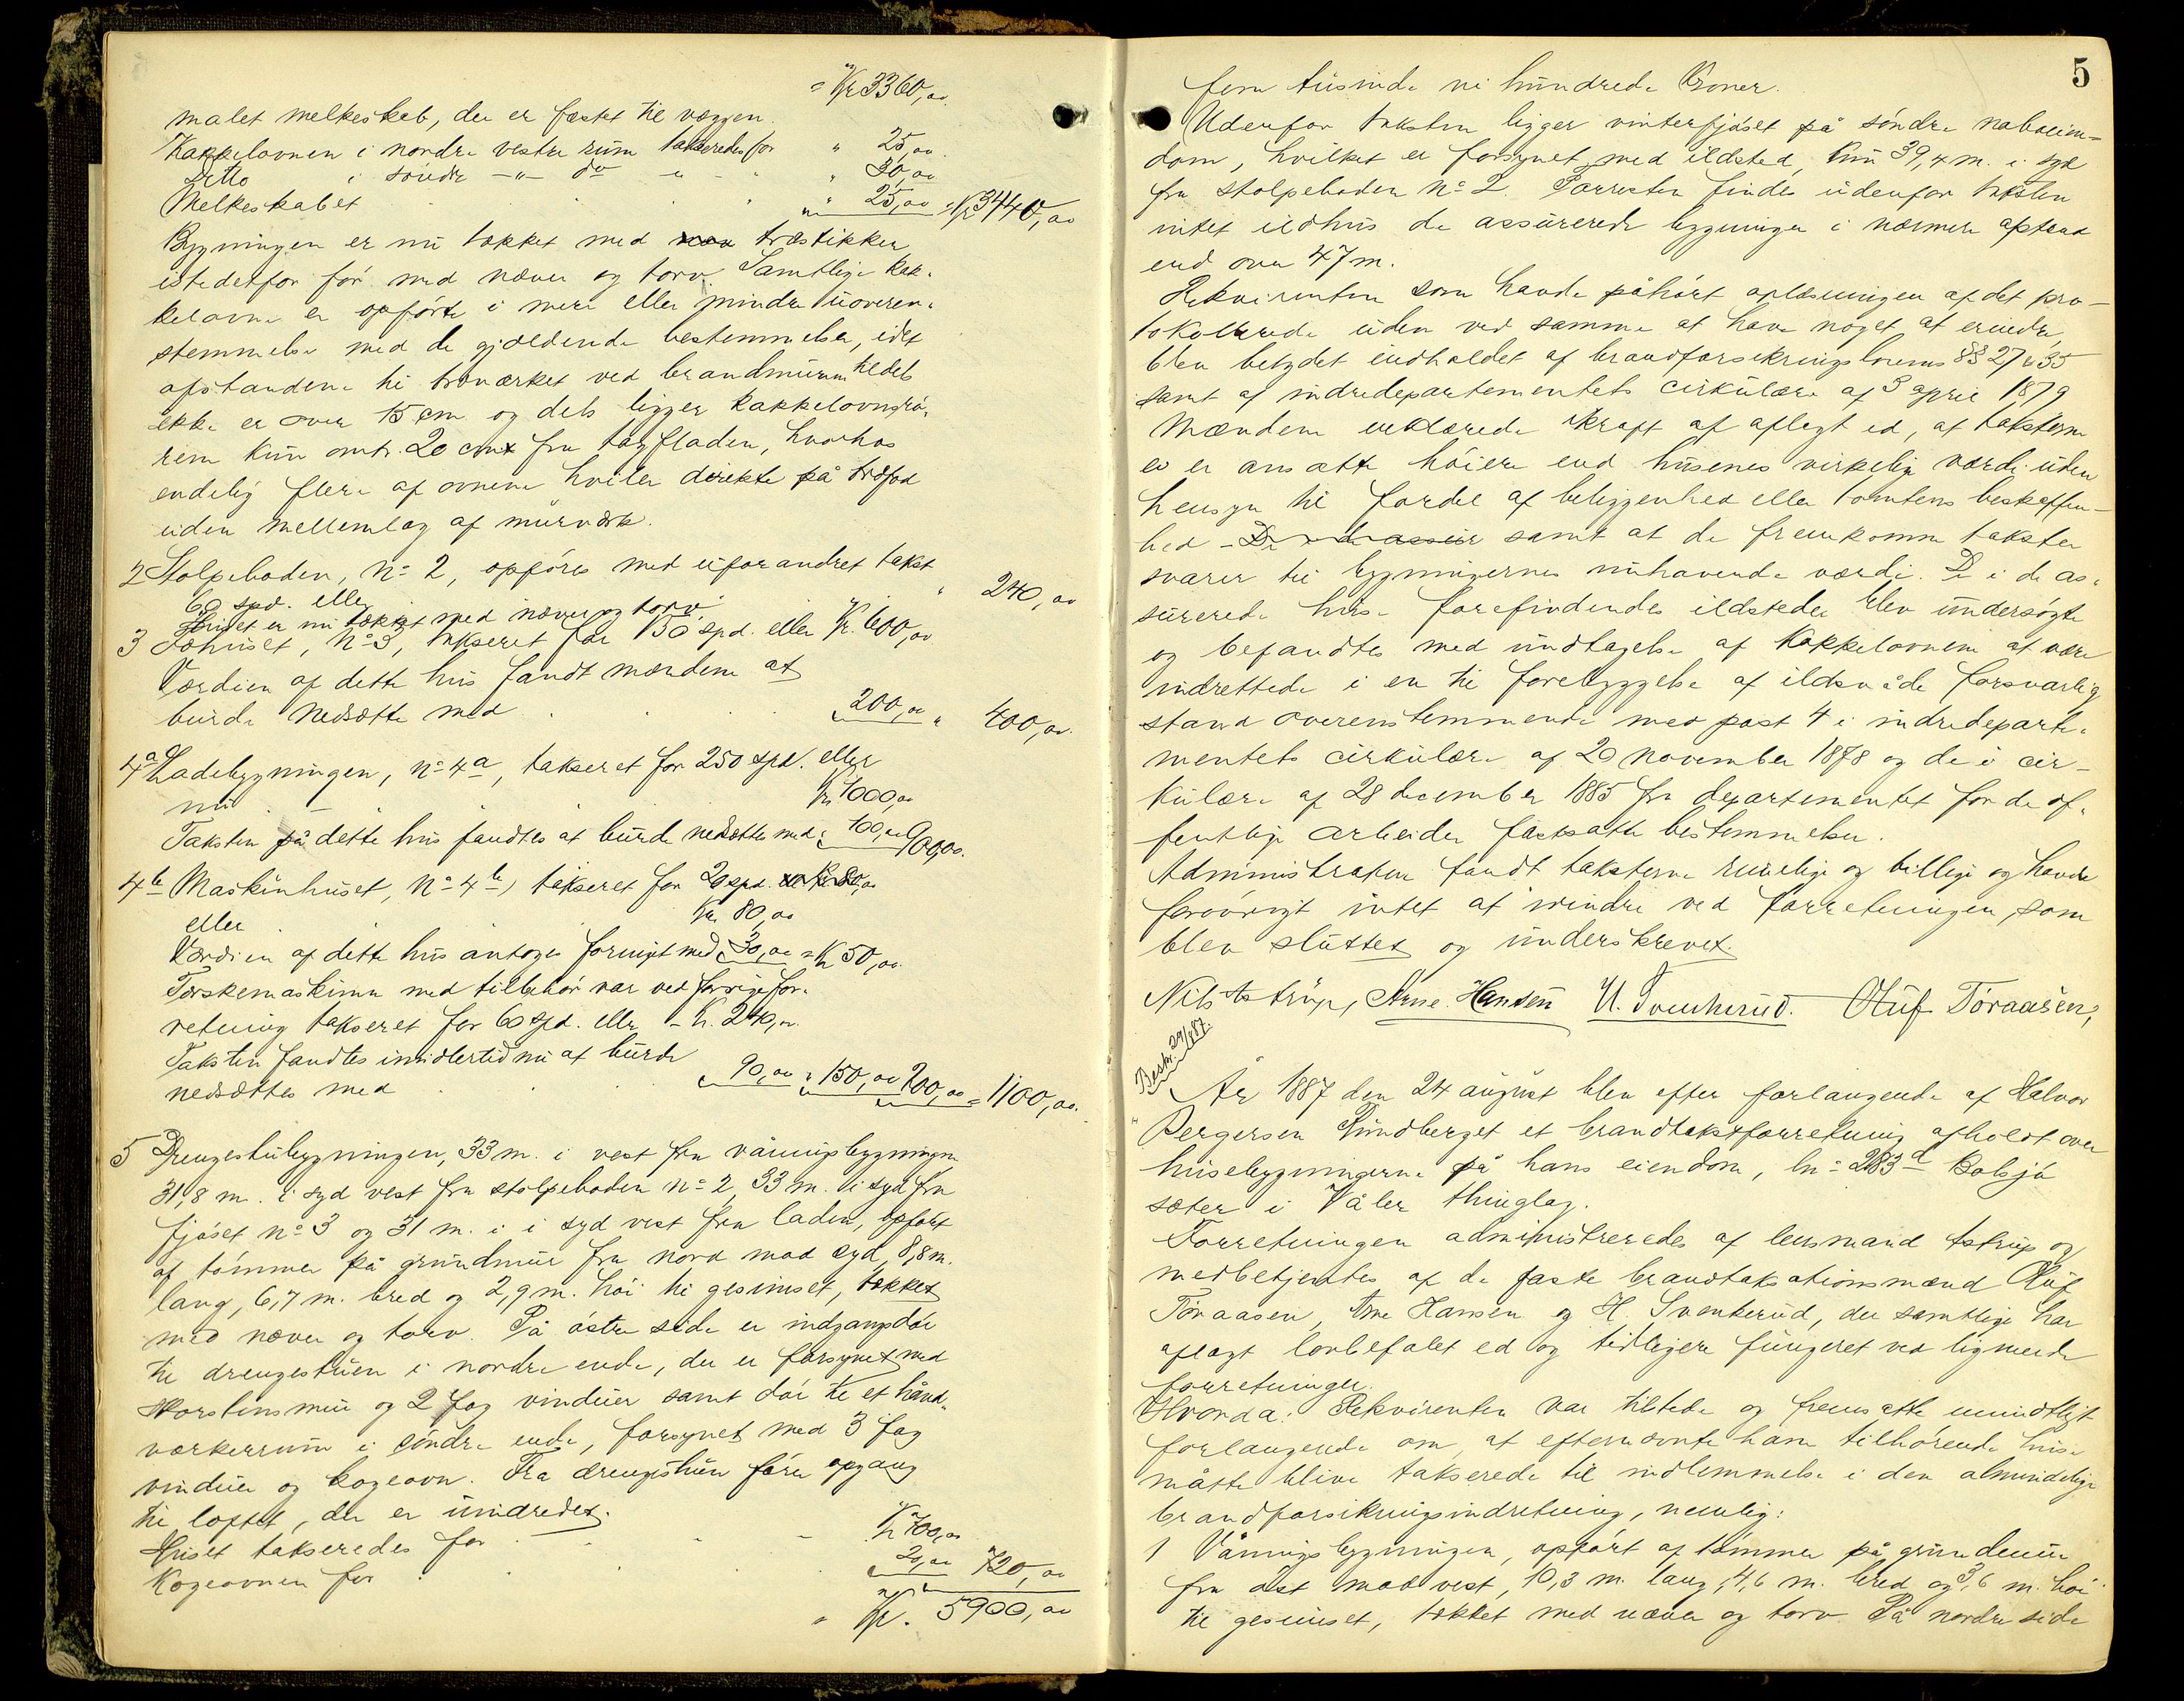 = Kr 3360,00
malet melkeskab, der er fæstet til væggen.
Kakkelovnen i nordre vestre rum takseredes for " 25,00
Ditto i söndre -"- do " - " " 30,00
Melkeskabet " " 25,00 = Kr 3440,00
Bygningen er nu tækket med træstikker
istedetfor för med næver og torv. Samtlige kak-
kelovne er opförte i mere eller mindre uoveren-
stemmelse med de gjældende bestemmelser, idet
afstandene til træværket ved brandmuren tildels
ikke er over 15 cm og dels ligger kakkelovnsrö-
rene kun omtr. 20 cm fra tagfladen, hvorhos
endelig flere af ovnene hviler direkte på træfod
uden mellemlag af murværk.
2 Stolpeboden, No 2, opföres med uforandret takst
60 spd. eller " 240,00
Huset er nu tækket med næver og torv.
3 Fæhuset, No 3, takseret for 150 spd. eller Kr. 600,00
Værdien af dette hus fandt mændene at
burde nedsætte med 200,00 " 400,00
4a Ladebygningen, no 4a, takseret for 250 spd. eller
nu Kr 1000,00
Taksten på dette hus fandtes at burde nedsættes med 100,00 900,00
4b Maskinhuset, No 4b, takseret for 20 spd.
eller Kr. 80,00
Værdien af dette hus antoges forringet med 30,00 = Kr 50,00
Tærskemaskinen med tilbehör var ved forrige for-
retning takseret for 60 spd. eller - Kr. 240,00
Taksten fandtes imidlertid nu at burde
nedsættes med 90,00 = 150,00 200,00 = 1100,00
5 Drengestubygningen, 33 m. i vest fra våningsbygningen
31,8 m. i syd vest fra stolpeboden no 2, 33 m. i syd fra
fjöset no 3 og 31 m. i i syd vest fra laden, opfört
af tömmer på grundmur fra nord mod syd, 8,8 m.
lang, 6,7 m. bred og 2,9 m. höi til gesimset, tækket
med næver og torv. På östre side er indgangsdör
til drengestuen i nordre ende, der er forsynet med
skorstensmur og 2 fag vinduer samt dör til et hånd-
værkerrum i söndre ende, forsynet med 3 fag
vinduer og kogeovn. Fra drengestuen förer opgang
til loftet, der er uindredet.
Huset takseredes for Kr 700,00
Kogeovnen for 20,00 720,00
" Kr. 5900,00
5
fem tusinde ni hundrede Kroner.
Udenfor taksten ligger vinterfjöset på söndre naboeien-
dom, hvilket er forsynet med ildsted, kun 39,4 m. i syd
fra stolpeboden No 2. Forresten findes udenfor taksten
intet ildhus de assurerede bygninger i nærmere afstand
end over 47 m.
Rekvirenten som havde påhört oplæsningen af det pro-
tokollerede uden ved samme at have noget at erindre,
blev betydet indholdet af brandforsikringslovens §§ 27 & 35
samt af indredepartementets cirkulære af 3 april 1879
Mændene erklærede i kraft af aflagt ed, at taksterne
ei er ansatte höiere end husenes virkelige værdi uden
hensyn til fordel af beliggenhed eller tomtens beskaffen-
hed - samt at de fremkomne takster
svarer til bygningernes nuhavende værdi. De i de as-
surerede huse forefindendes ildsteder blev undersögte
og befandtes med undtagelse af kakkelovnene at være
indrettede i en til forebyggelse af ildsvåde forsvarlig
stand overensstemmende med post 4 i indredeparte-
mentets cirkulære af 20 november 1878 og de i cir-
kulære af 28 december 1885 fra departementet for de of-
fentlige arbeider fastsatte bestemmelser.
Administrator fandt taksterne rimelige og billige og havde
forövrigt intet at erindre ved forretningen, som
blev sluttet og underskrevet.
Nils Astrup, Arne Hansen H. Svenkerud. Oluf Toraasen,
Beskr. 29/8 87.
År 1887 den 24 august blev efter forlangende af Halvor
Bergersen Rundberget et brandtakstforretning afholdt over
husebygningerne på hans eiendom, ln: 283d Kolsjö
sæter i Våler thinglag.
Forretningen administreredes af lensmand Astrup og
medbetjentes af de faste brandtakstationsmænd Oluf
Toraasen, Arne Hansen og H. Svenkerud, der samtlige har
aflagt lovbefalet ed og tidligere fungeret ved lignende
forretninger.
Hvorda: Rekvirenten var tilstede og fremsatte mundtligt
forlangende om, at efternævnte ham tilhörende huse
måtte blive takserede til indlemmelse i den almindelige
brandforsikringsindretning, nemlig:
1 Våningsbygningen, opfört af tömmer på grundmur
fra öst mod vest, 10,3 m. lang, 4,6 m. bred og 3,6 m. höi
til gesimset, tækket med næver og torv. På nordre side